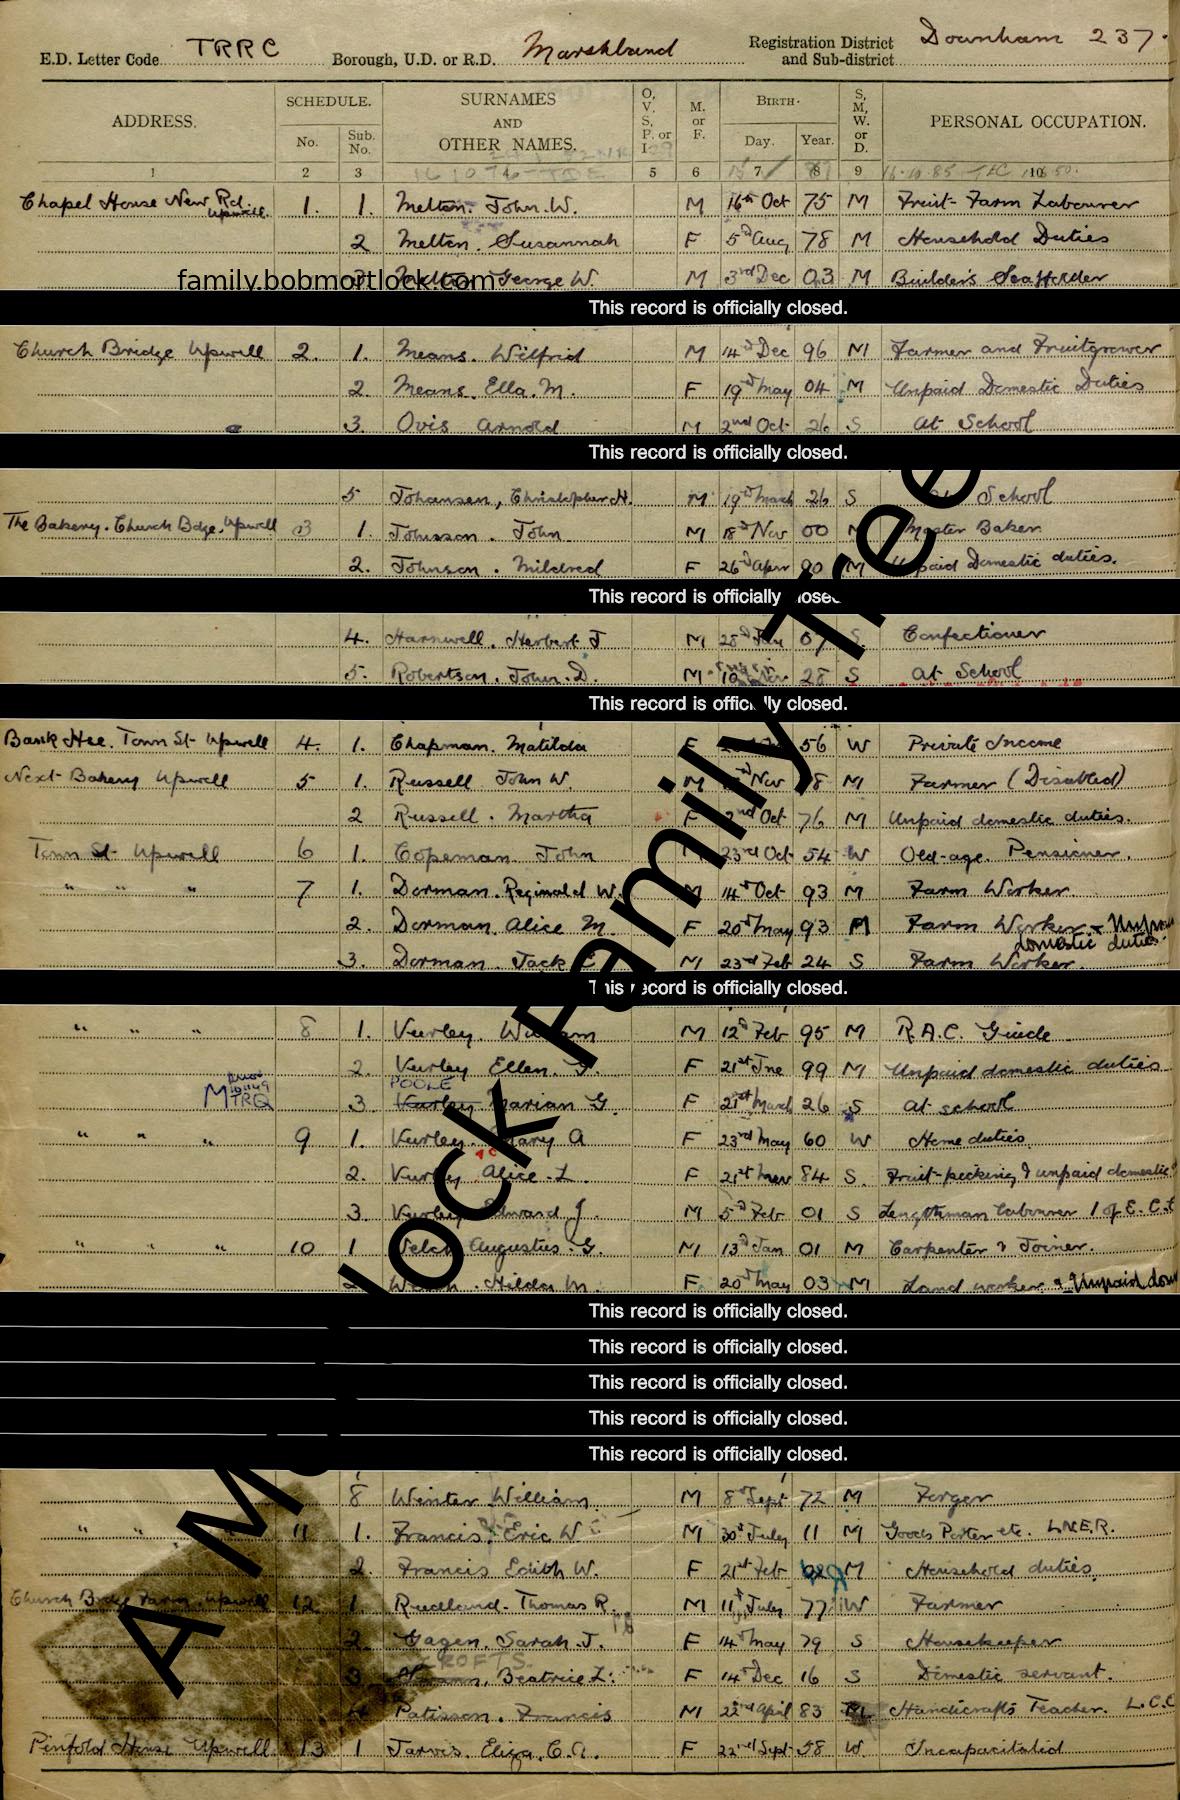 E.D. Letter Code TRRC Borough, U.D. or R.D. Marshland Registration District and Sub-district Downham 237.
ADDRESS. SCHEDULE. No. Sub. No. SURNAMES AND OTHER NAMES. O, V, S, P, or I. M. or F. BIRTH. Day. Year. S, M, W. or D. PERSONAL OCCUPATION.
1 2 3 4 5 6 7 8 9 10
Chapel House New Rd. Upwell. 1. 1. Melton. John. W. M 16th Oct 75 M Fruit-Farm Labourer
2 Melton. Susannah F 5th Aug 78 M Household Duties
family.bobmortlock.com
3 George W. M 3rd Dec 03 M Builder's Scaffolder
This record is officially closed.
Church Bridge Upwell 2. 1. Means. Wilfrid M 14th Dec 96 M Farmer and Fruitgrower
2 Means. Ella. M. F 19th May 04 M Unpaid Domestic Duties
3. Ovis Arnold M 2nd Oct 26 S At School
This record is officially closed.
5 Johansen, Christopher H. M 19th March 26 S School
The Bakery. Church Bdge. Upwell 3 1. Johnson. John M 18th Nov 00 M Master Baker
2. Johnson. Mildred F 26th Apr 90 M Unpaid Domestic duties.
This record is officially closed.
4. Harnwell. Herbert J M 07 S Confectioner
5. Robertson. John. D. M 10 28 S At School
This record is officially closed.
Bank Hse. Town St Upwell 4. 1. Chapman. Matilda F 56 W Private Income
Next Bakery Upwell 5 1. Russell John W. M Nov M Farmer (Disabled)
2 Russell. Martha F 2nd Oct 76 M Unpaid domestic duties.
Town St Upwell 6 1. Copeman. John 23rd Oct 54 W Old-age. Pensioner.
" " " 7 1. Dorman. Reginald W. M 14th Oct 93 M Farm Worker
2. Dorman. Alice M. F 20th May 93 M Farm Worker domestic duties.
3. Dorman. Jack M 23rd Feb 24 S Farm Worker.
This record is officially closed.
" " " 8 1. Vurley. William M 12th Feb 95 M R.A.C. Guide
2. Vurley Ellen. F 21st Jne 99 M Unpaid domestic duties
POOLE
M TRQ 3 Vurley Marian G. F 21st March 26 S At school
" " " 9 1. Vurley. Mary A F 23rd May 60 W Home duties
2. Vurley Alice. L. F 21st 84 S. Fruit-picking & unpaid domestic
3. Vurley Edward J. M 5th Feb 01 S Lengthman labourer
" " " 10 1 Welch Augustus. G. M 13th Jan 01 M Carpenter & Joiner.
2 Hilda M. F 20th May 03 M Land worker & Unpaid dom
This record is officially closed.
This record is officially closed.
This record is officially closed.
This record is officially closed.
This record is officially closed.
8 Winter William M 8th Sept 72 M Forger
" " " 11 1. Francis. Eric W. M 30th July 11 M Goods Porter etc. L.N.E.R.
2. Francis Edith W. F 21st Feb M Household duties
Church Bdge Farm. Upwell 12 1. Rudland. Thomas R. M 11th July 77 W Farmer
2. Gagen. Sarah. J. F 14th May 79 S Housekeeper
CROFTS.
3 Beatrice L. F 14th Dec 16 S Domestic servant.
4 Patisson. Francis M 22nd April 83 Handicrafts Teacher. L.C.C
Pinfold House Upwell 13 1 Jarvis. Eliza. C. A. F 22nd Sept 58 W Incapacitated
A Mortlock Family Tree